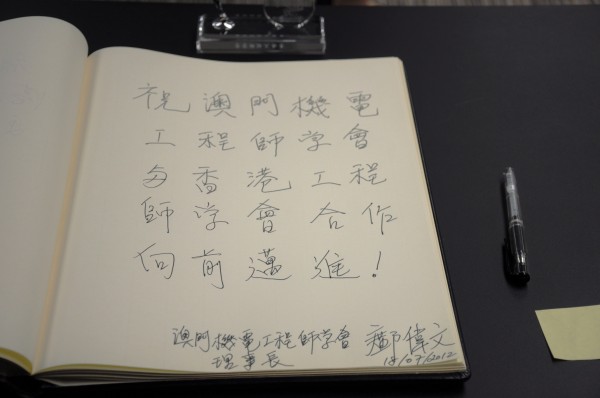 祝澳門機電
工程師学會
与香港工程
師学會合作
向前邁進!
澳門機電工程師学會 鄺偉文
理事長 18/07/2012